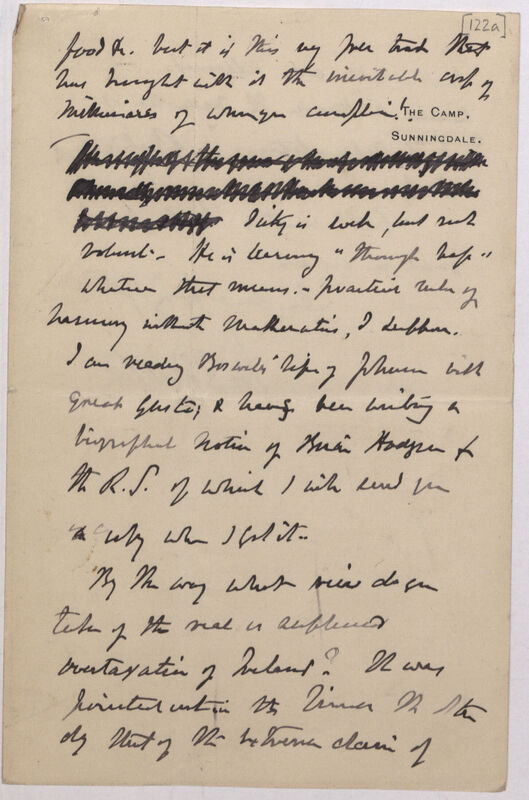 [122a]
food &c. but it is this very free trade that
has brought with it the inevitable crop of
Millionaires of whom you complain!
THE CAMP.
SUNNINGDALE.
is well, but not
robust – He is learning "through bass"
whatever that means. – practical rules of
harmony without Mathematics, I suppose.
I am reading Boswell's life of Johnson with
great gusto; & have been writing a
biographical notice of Brian Hodgson for
the R.S. of which I will send you
a copy when I get it –
By the way what view do you
take of the real or supposed
overtaxation of Ireland? It was
pointed out in the Times the other
day that if the extreme claim of